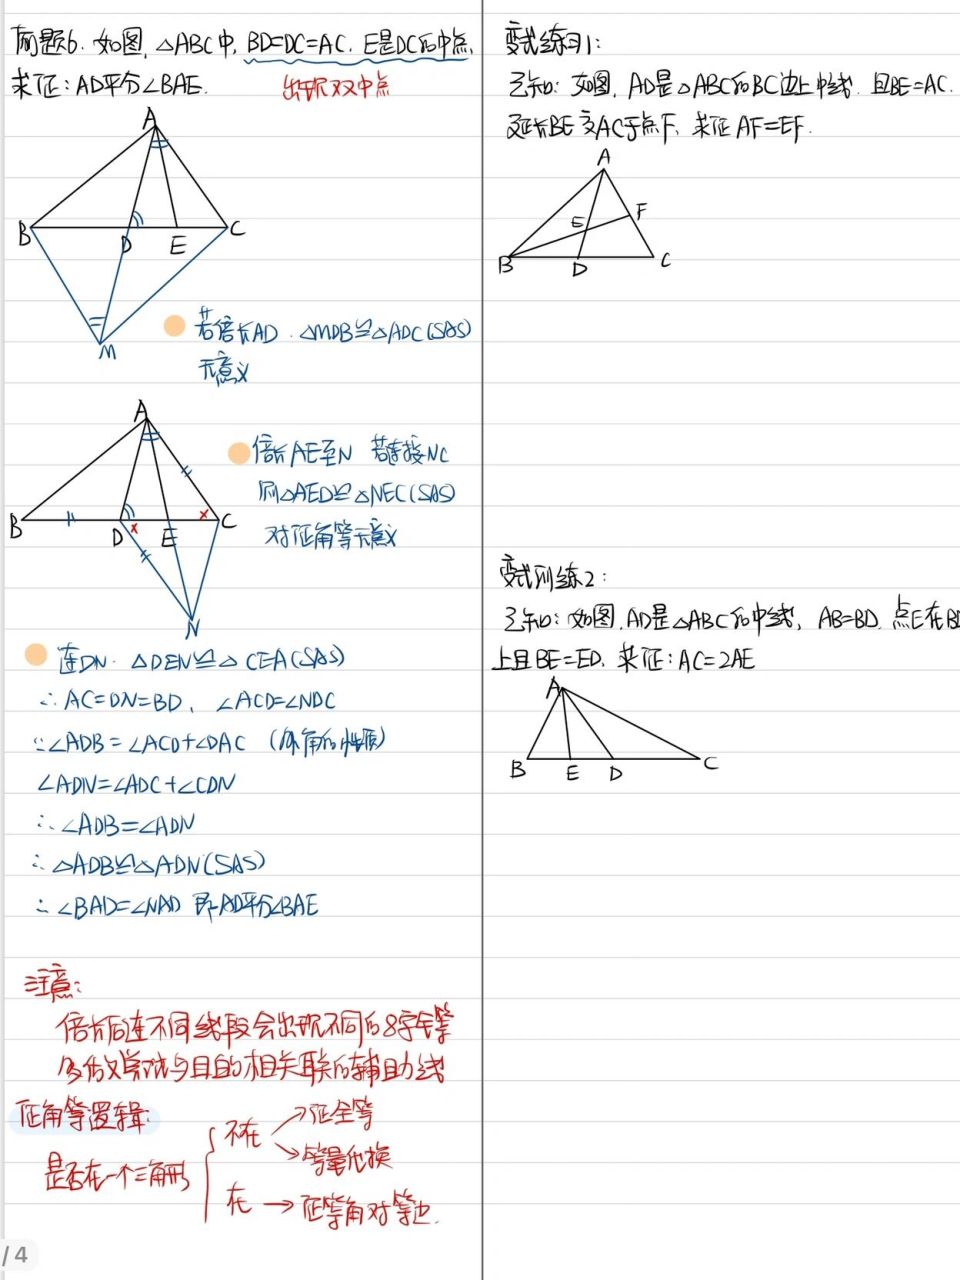 例题6. 如图, △ABC中, BD=DC=AC. E是DC的中点,
求证: AD平分∠BAE.
出现双中点
A
B
D
E
C
M
若倍长AD. △MDB≌△ADC(SAS)
无意义
A
B
D
E
C
N
倍长AE至N 若连接NC
则△AED≌△NEC(SAS)
对证角等无意义
连DN. △DEN≌△CEA(SAS)
∴AC=DN=BD, ∠ACD=∠NDC
∵∠ADB=∠ACD+∠DAC (外角的性质)
∠ADN=∠ADC+∠CDN
∴∠ADB=∠ADN
∴△ADB≌△ADN(SAS)
∴∠BAD=∠NAD 即AD平分∠BAE
注意:
倍长后连不同线段会出现不同的8字全等
多做尝试与目的相关联的辅助线
证角等逻辑:
是否在一个三角形
不在
证全等
等量代换
在 → 证等角对等边.
/4
变式练习1:
已知: 如图, AD是△ABC的BC边上中线. 且BE=AC.
延长BE交AC于点F. 求证AF=EF.
A
E
F
B
D
C
变式训练2:
已知: 如图, AD是△ABC的中线, AB=BD. 点E在BD
上且BE=ED. 求证: AC=2AE
A
B
E
D
C